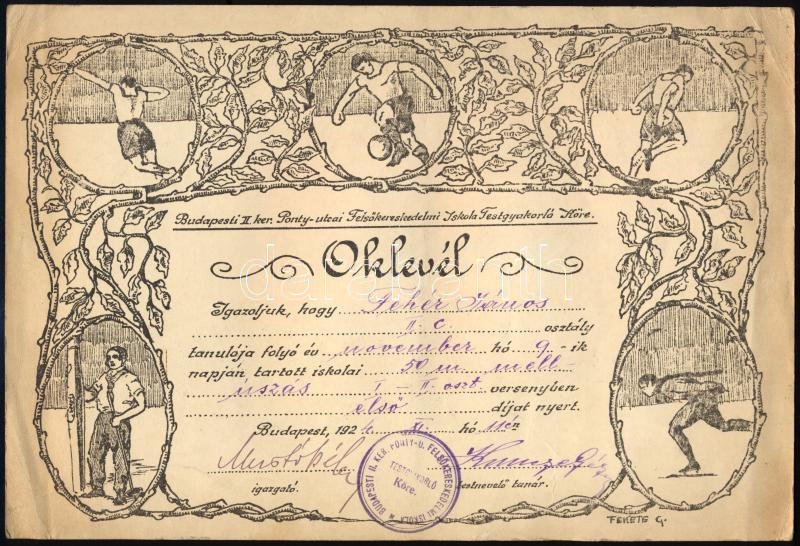 Budapesti II ker. Ponty-utcai Felsőkereskedelmi Iskola Testgyakorló Köre.
Oklevél
Igazoljuk, hogy Fehér János
II. c. osztály
tanulója folyó év november hó 9.-ik
napján tartott iskolai 50 m mell-
úszás I-II oszt. versenyben
első díjat nyert.
Budapest, 192 XI. hó 11én
igazgató. testnevelő tanár.
BUDAPESTI II. KER. PONTY-U. FELSŐKERESKEDELMI ISKOLA
TESTGYAKORLÓ
Köre.
FEKETE G.
darabanth